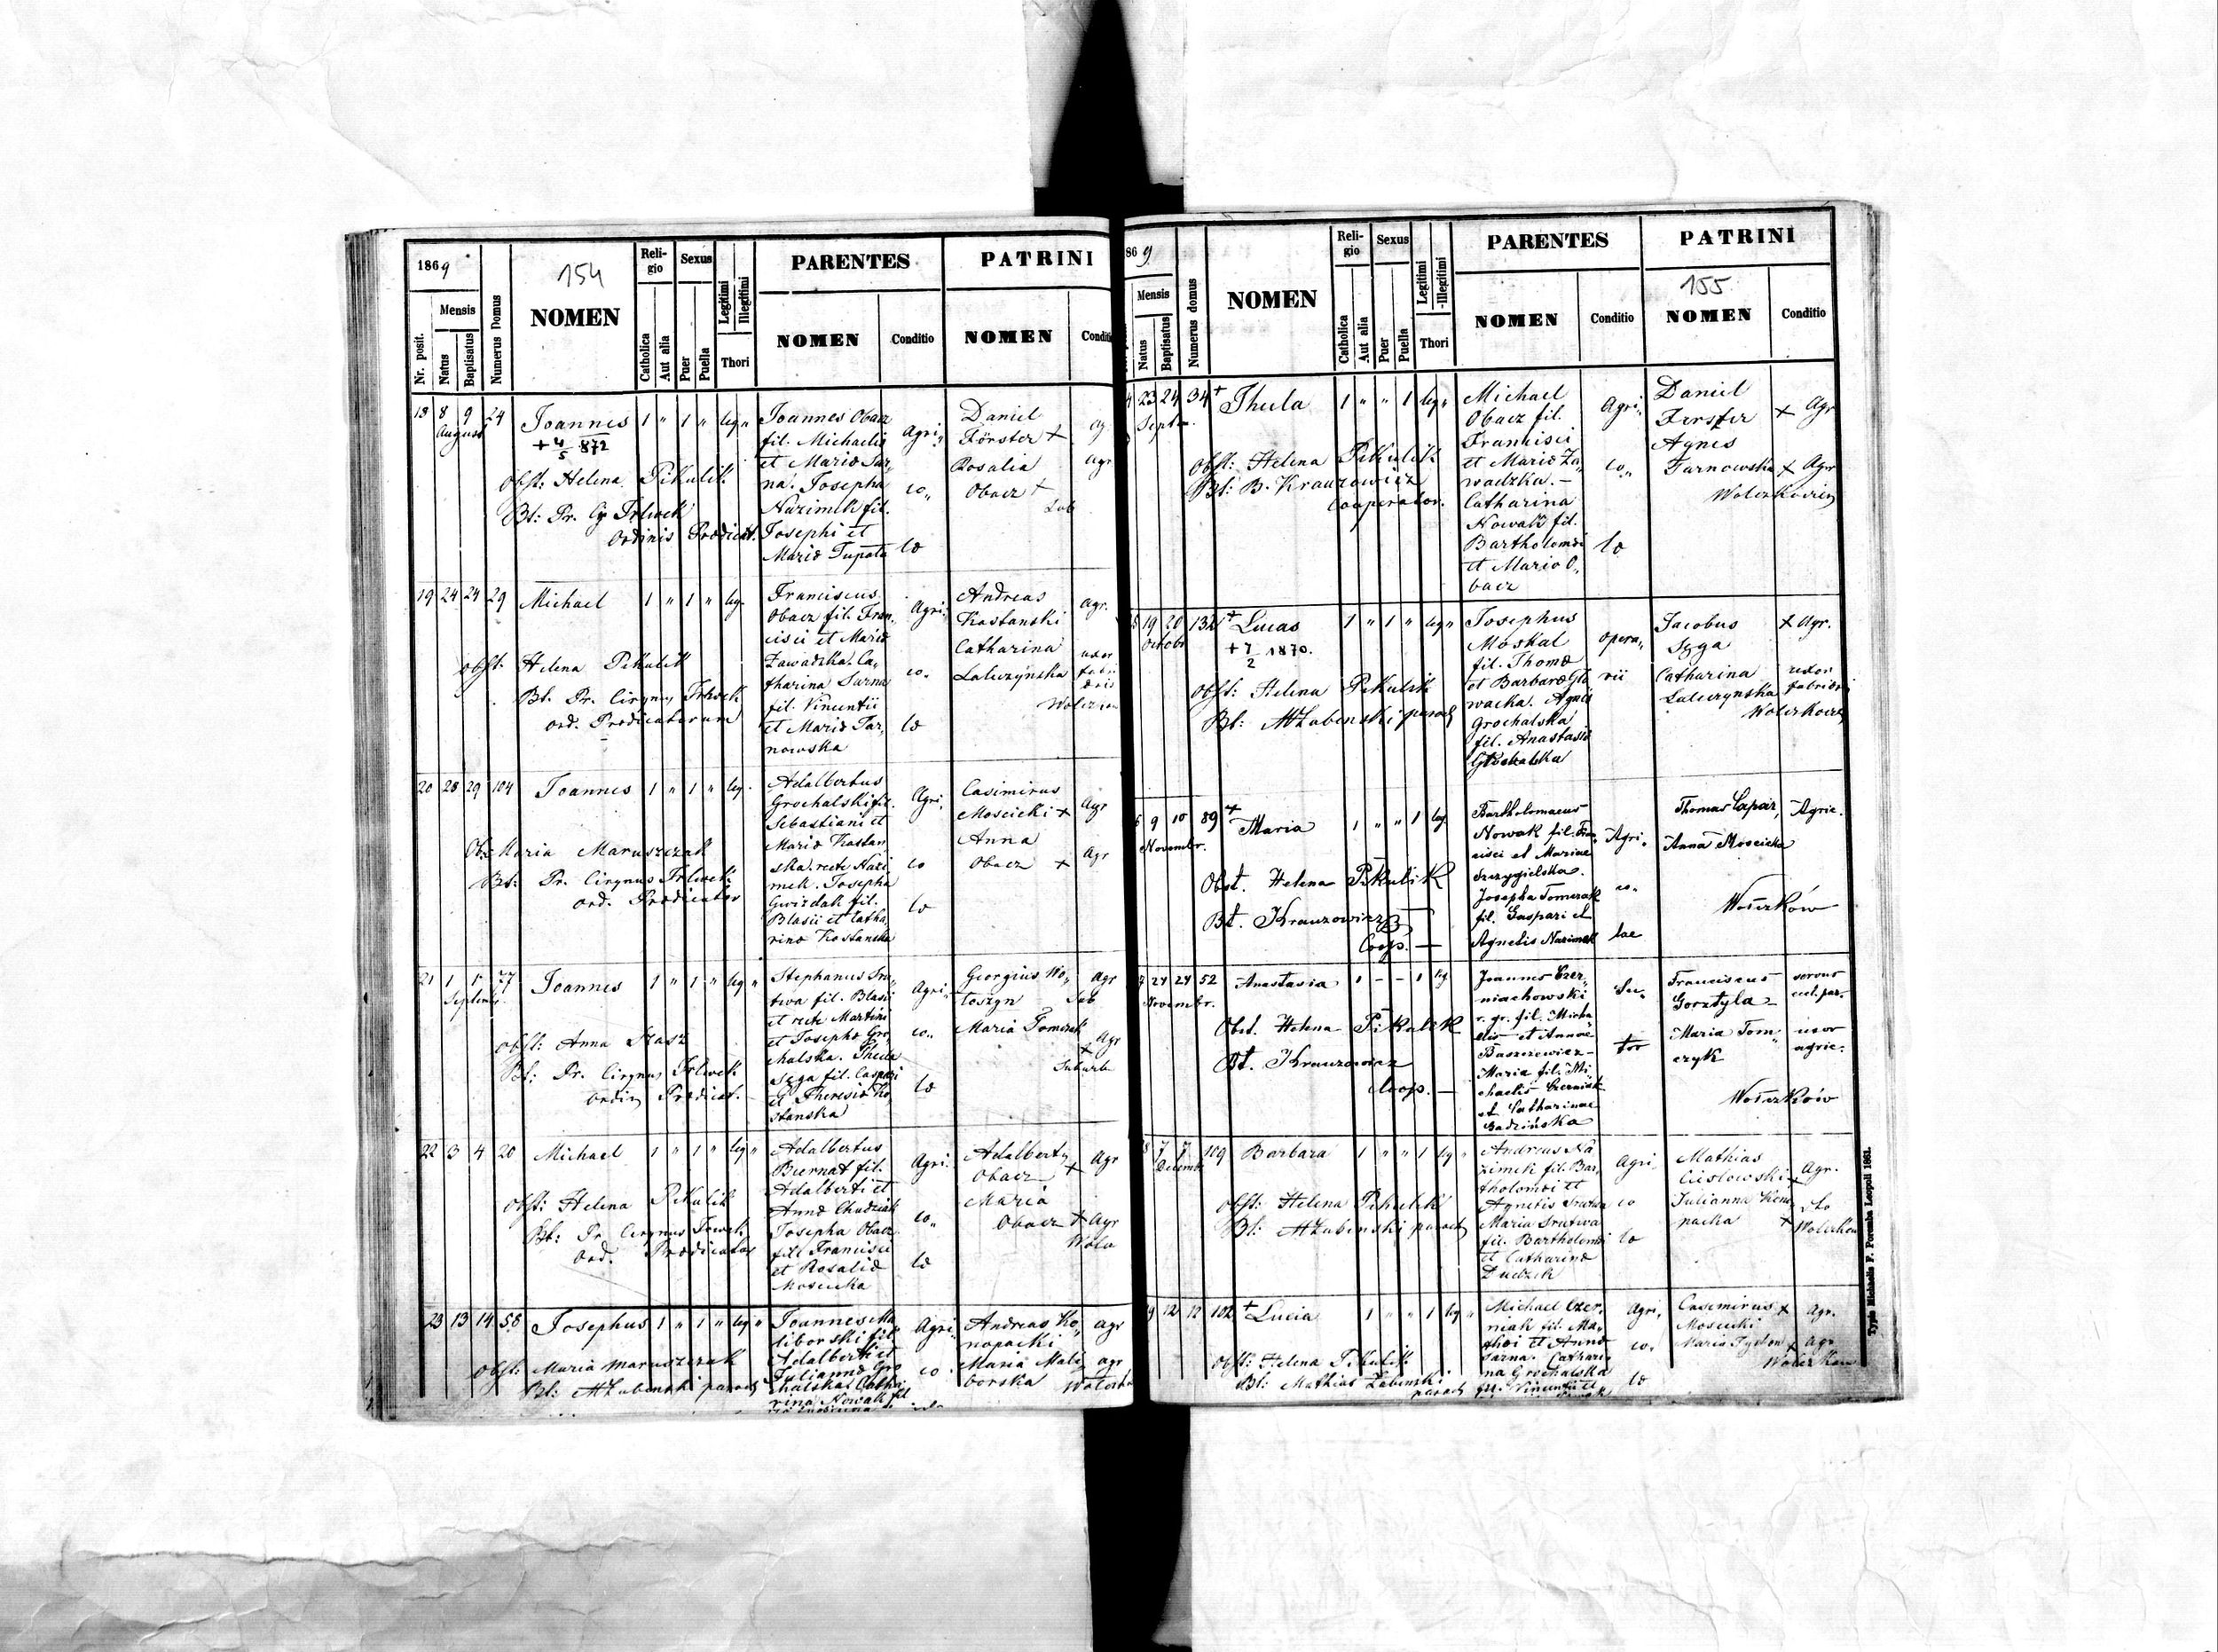 1869
154
Mensis
Nr. posit.
Natus
Baptisatus
Numerus Domus
NOMEN
Reli-
gio
Catholica
Aut alia
Sexus
Puer
Puella
Legitimi
Illegitimi
Thori
PARENTES
NOMEN
Conditio
PATRINI
NOMEN
Condi
18 8 9 24 Joannes 1 " 1 " leg "
August
+ 4/5 872
Obst: Helena Pikulik
Bt: Pr. Trlwek
Ordinis Prædicat.
Joannes Obacz
fil. Michaelis
et Mariæ Sar,
na. Josepha
Nazimek fil.
Josephi et
Mariæ
Agri,
co,,
læ
Daniel
Förster +
Rosalia
Obacz +
Agr
Sub
19 24 24 29 Michael 1 " 1 " leg.
Obst. Helena Pikulik
Bt. Pr. Cirynus Trlwek
ord. Prædicatorum
Franciscus
Obacz fil. Fran,
cisci et Mariæ
Zawadzka. Ca,
tharina Sarna
fil. Vincentii
et Mariæ Tar,
nowska
Agri,
co.
læ
Andreas
Kostanski
Catharina
Laluczynska
Agr.
uxor
20 28 29 104 Joannes 1 " 1 " leg.
Ob: Maria Maruszczak
Bt: Pr. Cirynus Trlwek
ord. Prædicator
Adalbertus
Grochalski fil.
Sebastiani et
Mariæ Kostan,
ska. recte Nazi,
mek. Josepha
Gwizdak fil.
Blasii et Catha,
rinæ Kostanska
Agri,
co
læ
Casimirus
Moscicki +
Anna
Obacz +
Agr
Agr
21 1 1 77 Joannes 1 " 1 " leg "
Septemb.
Obst: Anna Szasz
Bt: Pr. Cirynus Trlwek
Ordin Prædicat.
Stephanus Sru,
twa fil. Blasii
et recte Martini
et Josephæ Gro,
chalska. Thecla
Sęga fil. Caspari
et Theresiæ Ko,
stanska
Agri,
co,,
læ
Georgius Wo,
toszyn
Maria Tomczak
+
Agr
Sub
Agr
Suburb
22 3 4 20 Michael 1 " 1 " leg "
Obst: Helena Pikulik
Bt: Pr. Cirynus
Ord. Prædicator
Adalbertus
Biernat fil.
Adalberti et
Annæ Chudziak
Josepha Obacz
fil. Francisci
et Rosaliæ
Moscicka
Agri,
co,,
læ
Adalbertus
Obacz +
Maria
Obacz +
Agr
Agr
23 13 14 58 Josephus 1 " 1 " leg "
Obst: Maria Maruszczak
Bt: MZabinski paroch
Joannes Ma,
liborski fil.
Adalberti et
Juliannæ Gro
chalska. Catha,
rina Nowak fil
Agri,
co
Andreas Ko,
nopacki
Maria Mali,
borska
agr
agr
869
Mensis
Natus
Baptisatus
Numerus domus
NOMEN
Reli-
gio
Catholica
Aut alia
Sexus
Puer
Puella
Legitimi
Illegitimi
Thori
PARENTES
NOMEN
Conditio
PATRINI
155
NOMEN
Conditio
4 23 24 34 + Thecla 1 " " 1 leg "
Septem.
Obst: Helena Pikulik
Bt: B. Krauzowicz
Cooperator.
Michael
Obacz fil.
Francisci
et Mariæ Za,
wadzka. -
Catharina
Nowak fil.
Bartholomæi
et Mariæ O,
bacz
Agri,,
co,,
læ
Daniel
Forster
Agnes
Tarnowska
+ Agr
+ Agr
19 20 132 + Lucas 1 " 1 " leg "
Octobr
+ 7/2 1870.
Obst: Helena Pikulik
Bt: MZabinski paroch
Josephus
Moskal
fil. Thomæ
et Barbaræ
wacka. Agnes
Grochalska
fil. Anastasiæ
Grochalska
opera,
rii
Jacobus
Sęga
Catharina
Laluczynska
+ Agr.
uxor
9 10 89 + Maria 1 " " 1 leg
Novembr.
Obst. Helena Pikulik
Bt. Krauzowicz
Coop. —
Bartholomaeus
Nowak fil. Fran,
cisci et Mariae
Szczygielska.
Josepha Tomczak
fil. Gaspari et
Agnetis Nazimek
Agri,
co,
lae
Thomas Capar,
Anna Moscicka
Agric.
Wołczków
24 24 52 Anastasia 1 - - 1 leg
Novembr.
Obst. Helena Pikulik
Bt. Krauzowicz
Coop. —
Joannes Czer,
niachowski
r. gr. fil. Micha
elis et Annae
Baszczewicz -
Maria fil. Mi,
chaelis Czerniak
et Catharinae
Badzińska
Su,
tor
Franciscus
Gorztyla
Maria Tom,
czyk
servus
uxor
agric.
Wołczków
8 7 7 109 Barbara 1 " " 1 leg "
Decemb
Obst: Helena Pikulik
Bt: MZabinski paroch
Andreas Na
zimek fil. Bar,
tholomæi et
Agnetis Srutwa
Maria Srutwa
fil. Bartholomæi
et Catharinæ
Dudzik
Agri,
co
læ
Mathias
Cieslowski +
Julianna Kono,
packa +
Agr.
9 12 12 102 + Lucia 1 " " 1 leg "
Obst: Helena Pikulik
Bt: Mathias Zabinski
paroch
Michael Czer,
niak fil. Ma,
thæi et Annæ
Sarna. Cathari,
na Grochalska
fil. Vincentii et
Agri,
co.
læ
Casimirus +
Moscicki
Maria
Agr.
Agr.
Typis Michaelis F. Poremba Leopoli 1861.